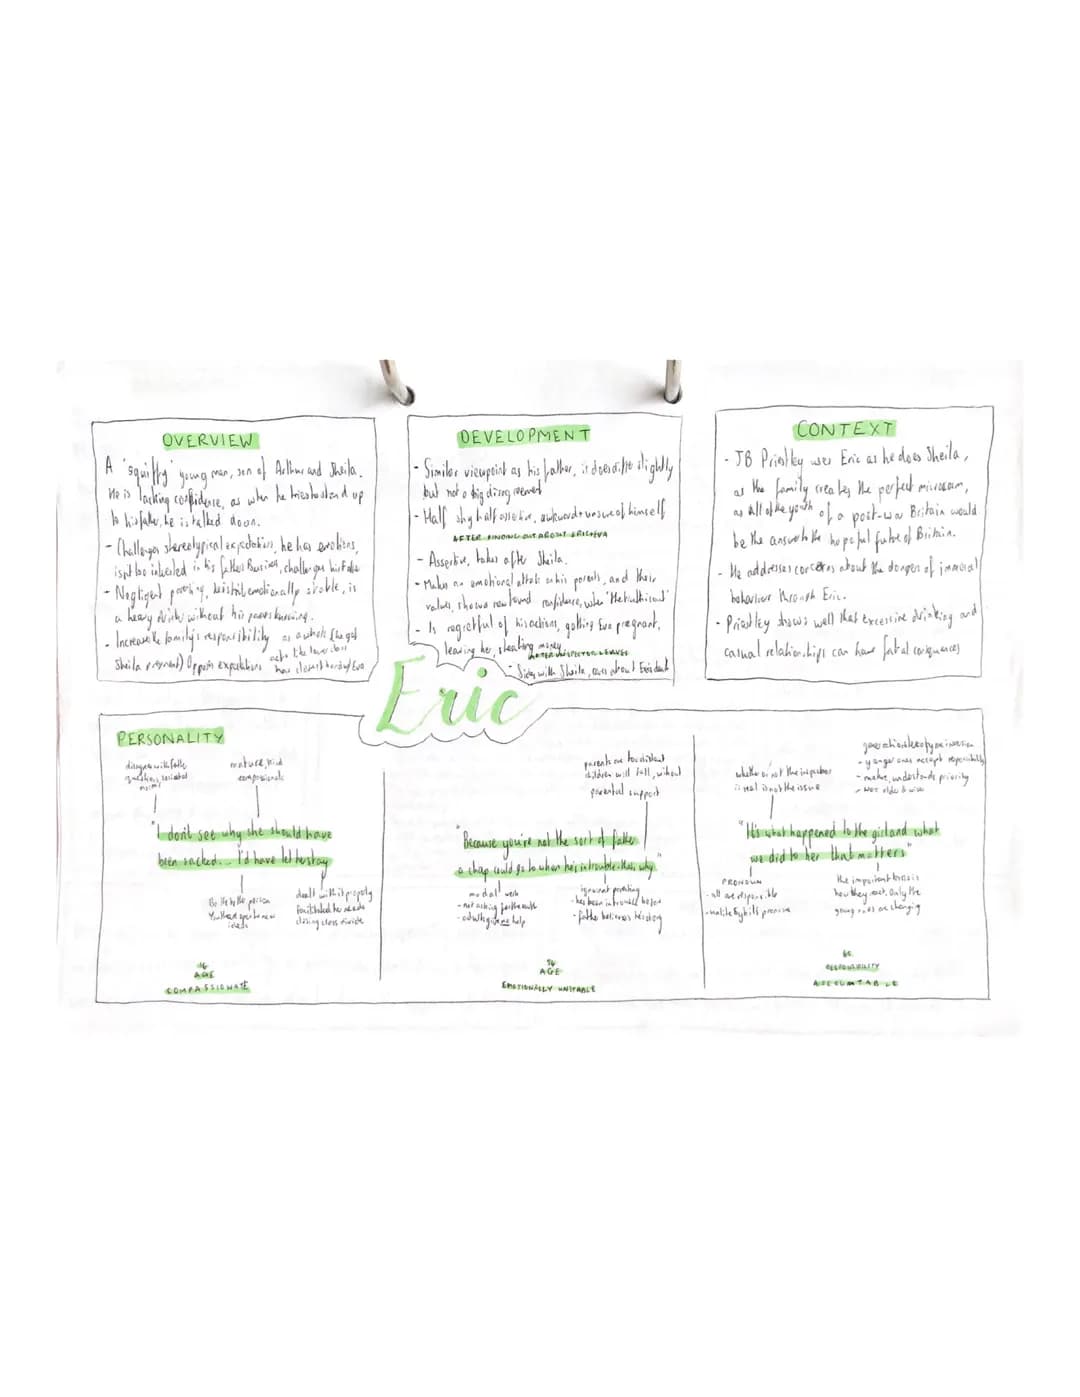 OVERVIEW
A 'squiffy' young man, son of Arthur and Sheila.
He is lacking confidence, as when he tries to stand up
to his father, he is talked down.
- Challenges stereotypical expectations, he has emotions,
isn't too interested in his father Business, challenges his father
- Negligent parenting, he isn't emotionally stable, is
a heavy drinker without his parents knowing.
- Increases the family's responsibility as a whole (he got
Sheila pregnant) Opposes expectations acts like lower class
DEVELOPMENT
- Similar viewpoint as his father, it does differ slightly
but not a big disagreement
- Half shy half assertive, awkward + unsure of himself
AFTER FINDING OUT ABOUT ERIC + EVA
- Assertive, takes after Sheila.
- Makes an emotional attack on his parents, and their
values, shows newfound confidence, when 'the truth is out'
- Is regretful of his actions, getting Eva pregnant,
leaving her, stealing money
AFTER INSPECTOR LEAVES
- Sides with Sheila, cares about Eva's death
CONTEXT
- JB Priestley uses Eric as he does Sheila,
as the family creates the perfect microcosm,
as all of the youth of a post-war Britain would
be the answer to the hopeful future of Britain.
- He addresses concerns about the dangers of immoral
behaviour through Eric.
- Priestley shows well that excessive drinking and
casual relationships can have fatal consequences
Eric
PERSONALITY
disagrees with father
questions societal
norms
mature, kind
compassionate
"I don't see why she should have
been sacked... I'd have let her stay
Youth are open to new
ideas
dealt with it properly
closing class divide
AGE
COMPASSIONATE
parents are too distant
children will fall, without
parental support
"Because you're not the sort of father
a chap could go to when he's in trouble - that's why"
modal verb
- not asking for the truth
- adults give no help
ignorant parenting
- has been in trouble before
- father believes his doing
AGE
EMOTIONALLY UNSTABLE
whether or not the inspector
is real is not the issue
- younger ones accept responsibility
- mature, understands priority
- NOT older & wise
"It's what happened to the girl and what
we did to her that matters"
PRONOUN
- all are responsible
the important lesson is
how they react. Only the
young ones are changing
RESPONSIBILITY
ACCOUNTABLE